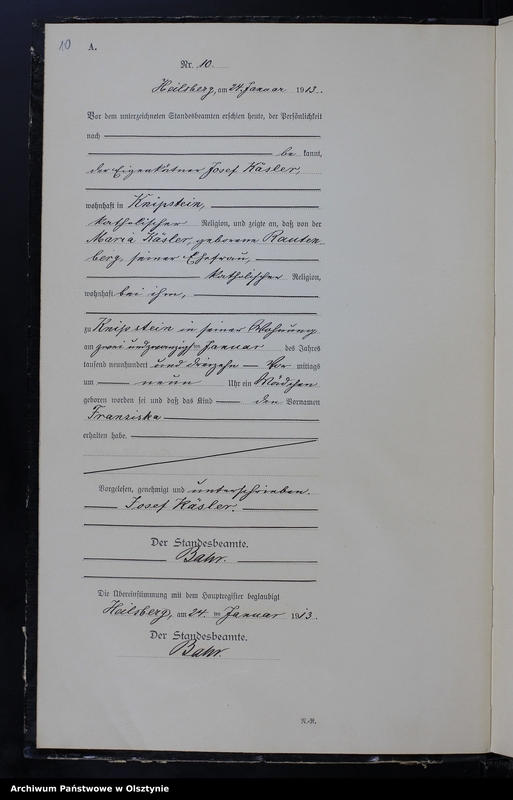 10
A.
Nr. 10.
Heilsberg, am 24. Januar 1913.
Vor dem unterzeichneten Standesbeamten erschien heute, der Persönlichkeit
nach
be kannt,
der Eigenkätner Josef Käsler,
wohnhaft in Knipstein,
katholischer Religion, und zeigte an, daß von der
Maria Käsler, geborene Rauten
berg, seiner Ehefrau,
katholischer Religion,
wohnhaft bei ihm,
zu Knipstein in seiner Wohnung
am zwei und zwanzigsten Januar des Jahres
tausend neunhundert und dreizehn Vor mittags
um neun Uhr ein Mädchen
geboren worden sei und daß das Kind den Vornamen
Franziska
erhalten habe.
Vorgelesen, genehmigt und unterschrieben.
Josef Käsler.
Der Standesbeamte.
Bahr.
Die Übereinstimmung mit dem Hauptregister beglaubigt
Heilsberg, am 24. ten Januar 1913.
Der Standesbeamte.
Bahr.
N.-R.
Archiwum Państwowe w Olsztynie